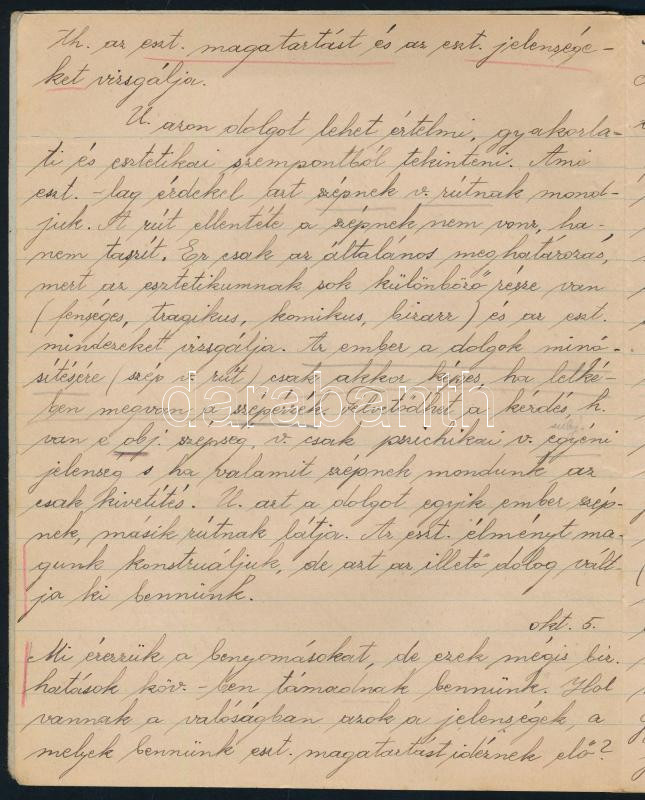 Th. az eszt. magatartást és az eszt. jelensége-
ket vizsgálja.
U. azon dolgot lehet értelmi, gyakorla-
ti és esztétikai szempontból tekinteni. Ami
eszt.-lag érdekel azt szépnek v. rútnak mond-
juk. A rút ellentéte a szépnek nem vonz, ha-
nem taszít. Ez csak az általános meghatározás,
mert az esztétikumnak sok különböző része van
(fenséges, tragikus, komikus, bizarr) és az eszt.
mindezeket vizsgálja. Az ember a dolgok minő-
sítésére (szép v. rút) csak akkor képes, ha lelké-
ben megvan a szépérzék. Felvetődhet a kérdés, h.
van e obj. szépség, v. csak pszichikai v. egyéni
szubj.
jelenség s ha valamit szépnek mondunk az
csak kivetítés. U. azt a dolgot egyik ember szép-
nek, másik rútnak látja. Az eszt. élményt ma-
gunk konstruáljuk, de azt az illető dolog vált-
ja ki bennünk.
okt. 5.
Mi érezzük a benyomásokat, de ezek mégis biz.
hatások köv.-ben támadnak bennünk. Hol
vannak a valóságban azok a jelenségek, a
melyek bennünk eszt. magatartást idéznek elő?
darabanth